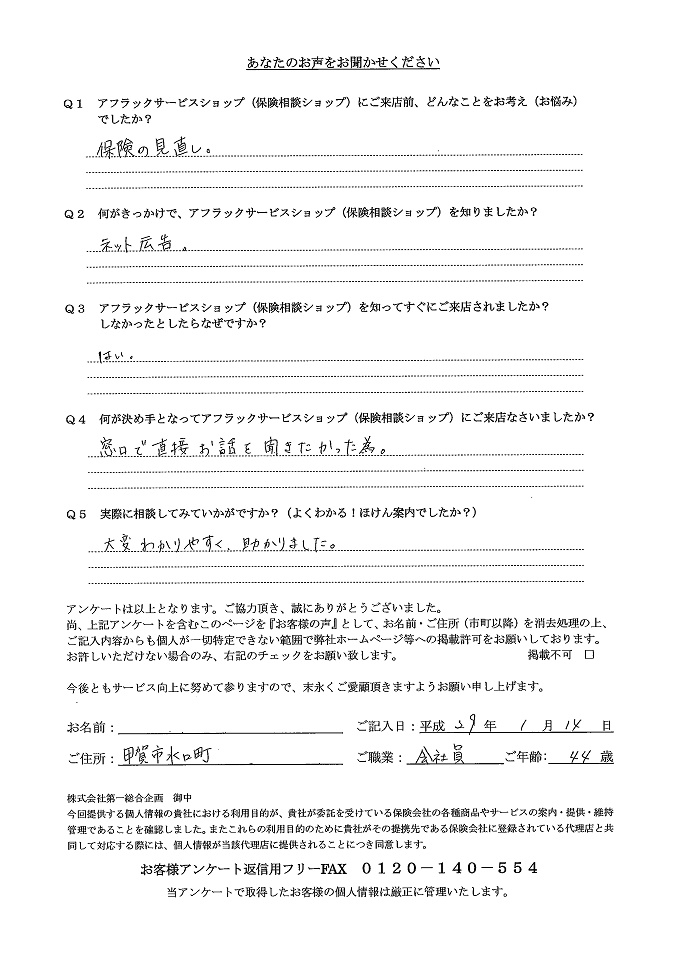 あなたのお声をお聞かせください
Q1 アフラックサービスショップ(保険相談ショップ)にご来店前、どんなことをお考え(お悩み)
でしたか?
保険の見直し。
Q2 何がきっかけで、アフラックサービスショップ(保険相談ショップ)を知りましたか?
ネット広告。
Q3 アフラックサービスショップ(保険相談ショップ)を知ってすぐにご来店されましたか?
しなかったとしたらなぜですか?
はい。
Q4 何が決め手となってアフラックサービスショップ(保険相談ショップ)にご来店なさいましたか?
窓口で直接お話を聞きたかった為。
Q5 実際に相談してみていかがですか?(よくわかる!ほけん案内でしたか?)
大変わかりやすく、助かりました。
アンケートは以上となります。ご協力頂き、誠にありがとうございました。
尚、上記アンケートを含むこのページを『お客様の声』として、お名前・ご住所(市町以降)を消去処理の上、
ご記入内容からも個人が一切特定できない範囲で弊社ホームページ等への掲載許可をお願いしております。
お許しいただけない場合のみ、右記のチェックをお願い致します。 掲載不可 □
今後ともサービス向上に努めて参りますので、末永くご愛顧頂きますようお願い申し上げます。
お名前: ご記入日:平成 29 年 1 月 14 日
ご住所:甲賀市水口町 ご職業:会社員 ご年齢:44 歳
株式会社第一総合企画 御中
今回提供する個人情報の貴社における利用目的が、貴社が委託を受けている保険会社の各種商品やサービスの案内・提供・維持
管理であることを確認しました。またこれらの利用目的のために貴社がその提携先である保険会社に登録されている代理店と共
同して対応する際には、個人情報が当該代理店に提供されることにつき同意します。
お客様アンケート返信用フリーFAX 0120-140-554
当アンケートで取得したお客様の個人情報は厳正に管理いたします。